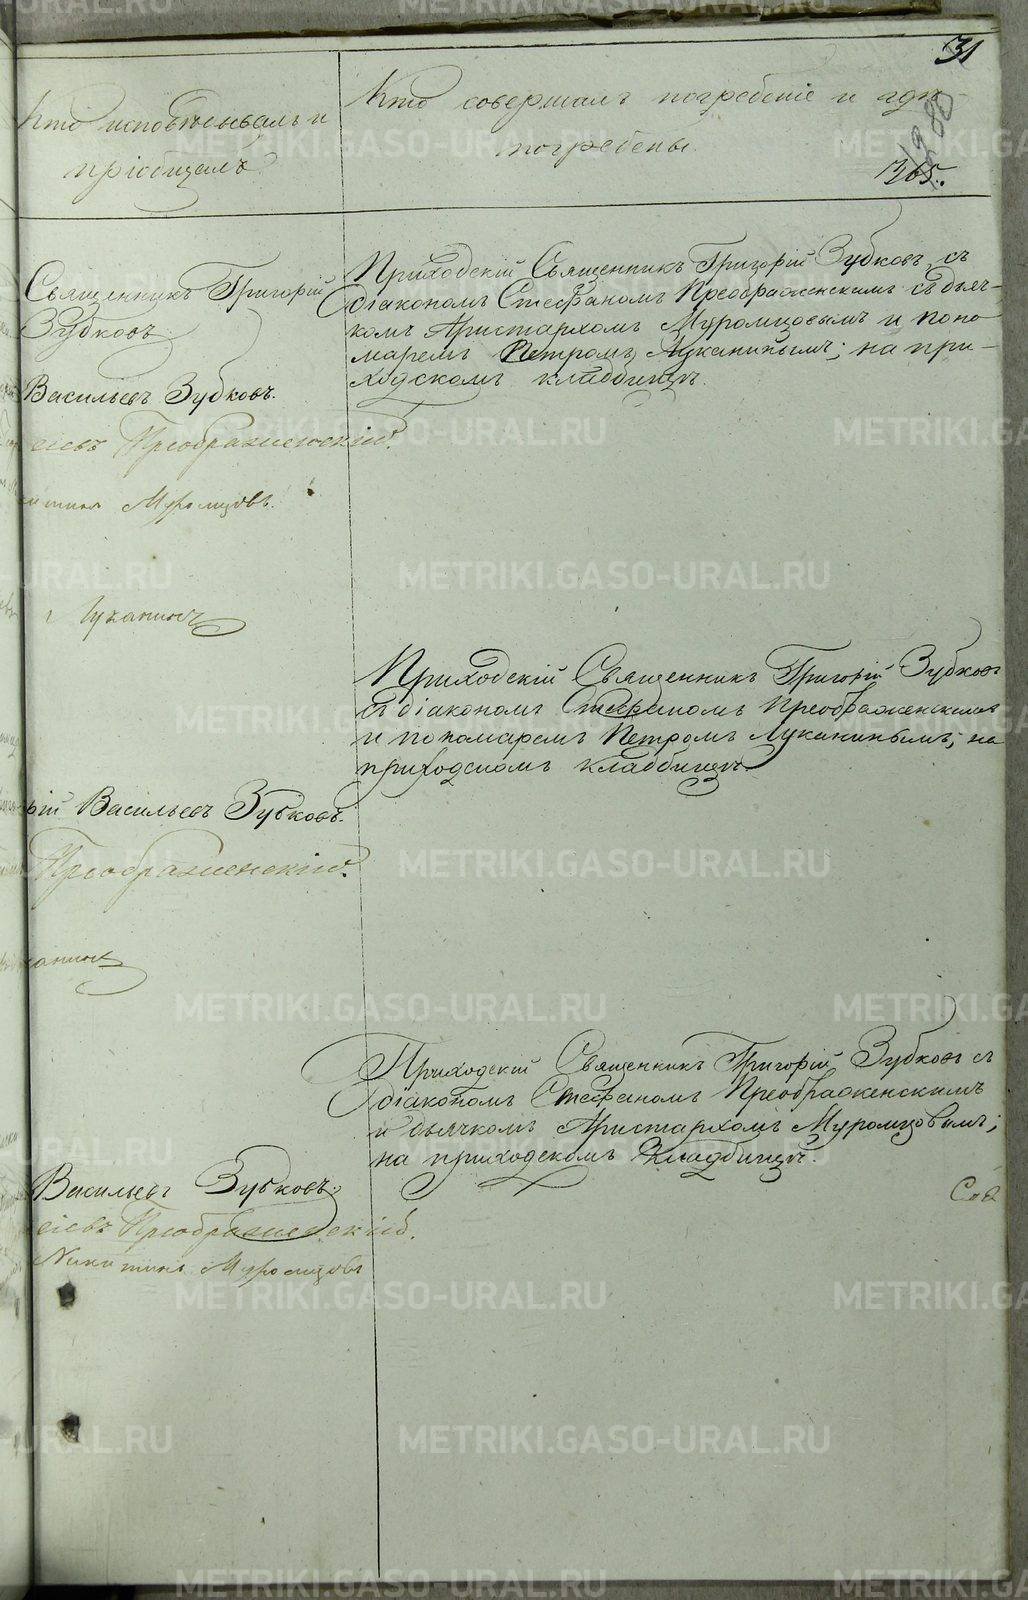 31
Кто исповѣдывалъ и
пріобщалъ.
Кто совершалъ погребеніе и гдѣ
погребены.
365.
Священникъ Григорій
Зубковъ
Приходскій Священникъ Григорій Зубковъ съ
діакономъ Стефаномъ Преображенскимъ съ дьяч-
комъ Аристархомъ Муромцовымъ и поно-
маремъ Петромъ Луканинымъ; на при-
ходскомъ кладбищѣ.
Васильевъ Зубковъ.
Преображенскій.
Муромцовъ.
Луканинъ
Приходскій Священникъ Григорій Зубковъ
съ діакономъ Стефаномъ Преображенскимъ
и пономаремъ Петромъ Луканинымъ; на
приходскомъ кладбищѣ.
рій Васильевъ Зубковъ.
Преображенскій.
канинъ
Приходскій Священникъ Григорій Зубковъ съ
діакономъ Стефаномъ Преображенскимъ
и дьячкомъ Аристархомъ Муромцовымъ;
на приходскомъ кладбищѣ.
Васильевъ Зубковъ.
Преображенскій.
Никитинъ Муромцовъ
METRIKI.GASO-URAL.RU